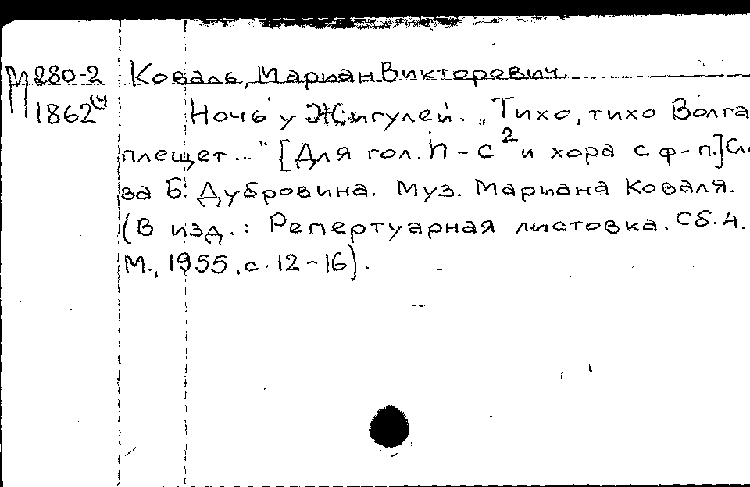 М 280-2 Коваль, Мариан Викторович
1862(4) Ночь у Жигулей. „Тихо, тихо Волга
плещет..." [Для гол. h - c² и хора с ф-п.] Сло
ва Б. Дубровина. Муз. Мариана Коваля.
(В изд.: Репертуарная листовка. Сб. 4.
М., 1955, с. 12-16).